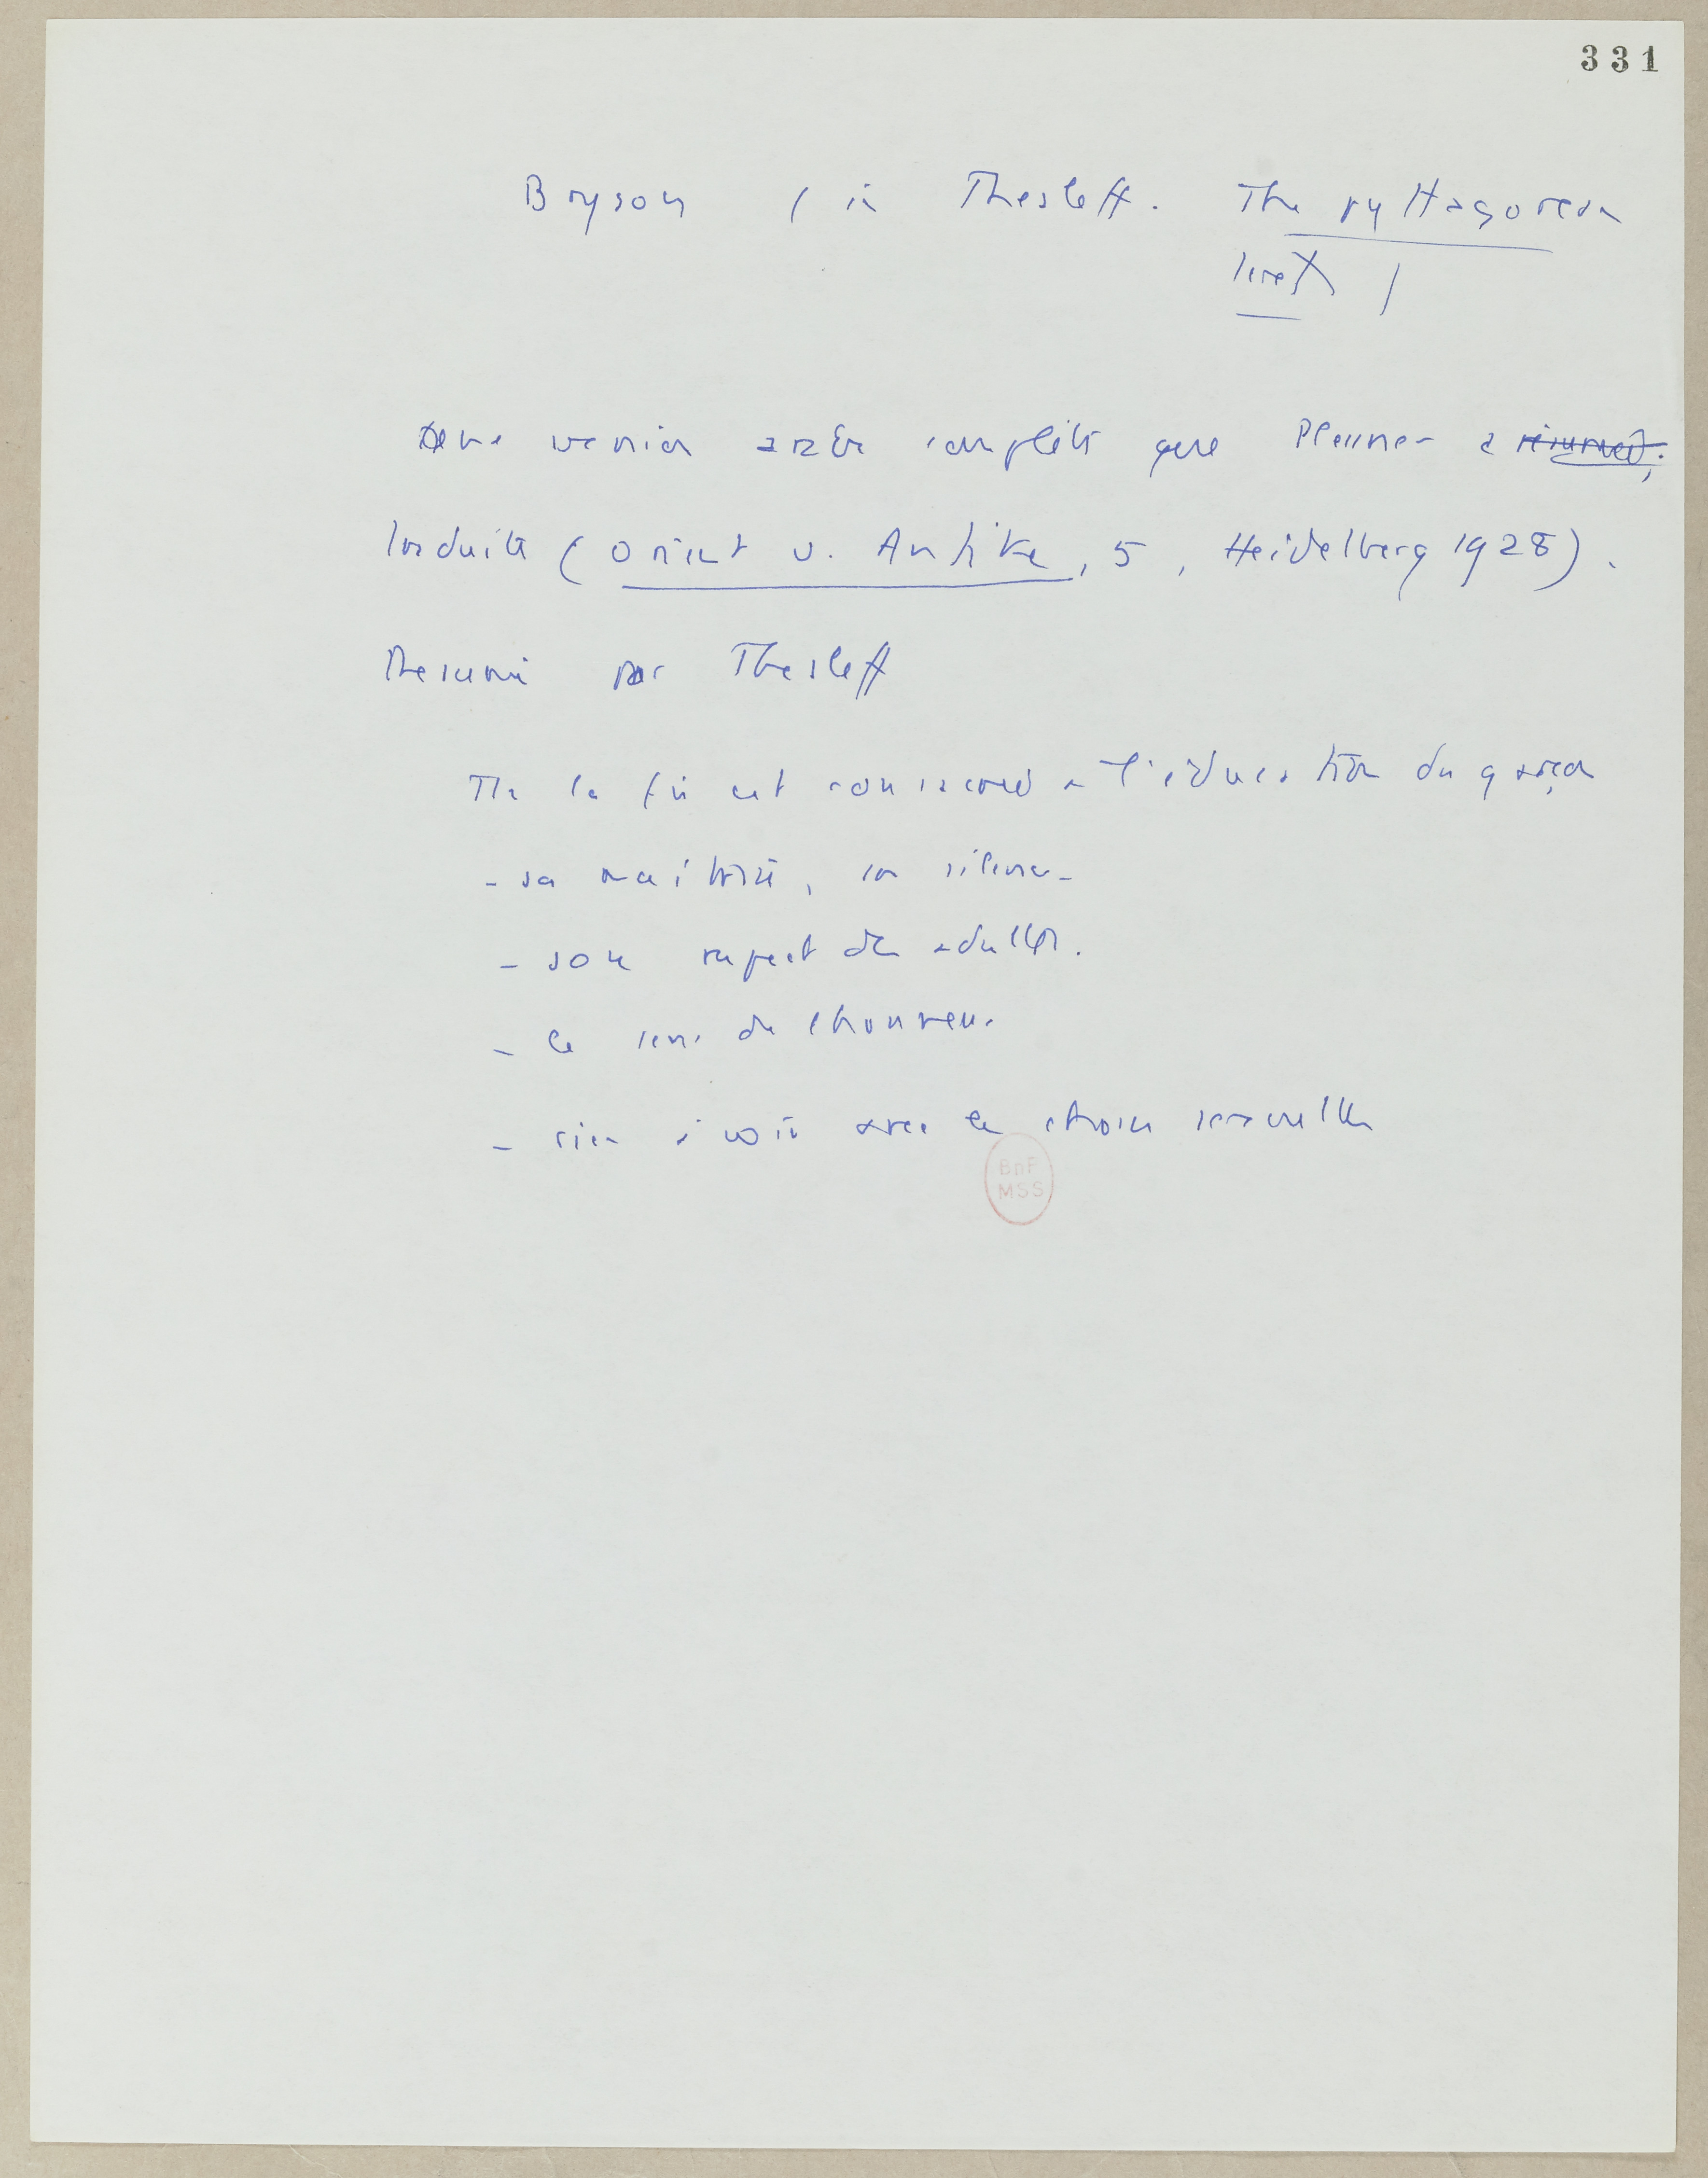 331
Bryson (in Thesleff. The pythagorean
texts)
Une version arabe complète que Plessner a résumée,
traduite (Orient u. Antike, 5, Heidelberg 1928).
Resumé par Thesleff
la fin est consacrée à l'éducation du garçon
- sa maîtrise, son silence
- son respect des adultes.
- le sens de l'honneur
- rien à voir avec les choses sexuelles
BnF
MSS